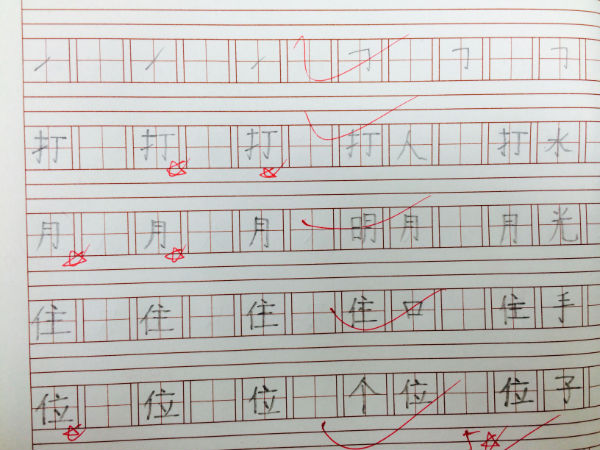 ㇒ ㇒ ㇒ ㇆ ㇆ ㇆
打 打 打 打人 打水
月 月 月 明月 月光
住 住 住 住口 住手
位 位 位 个位 位子